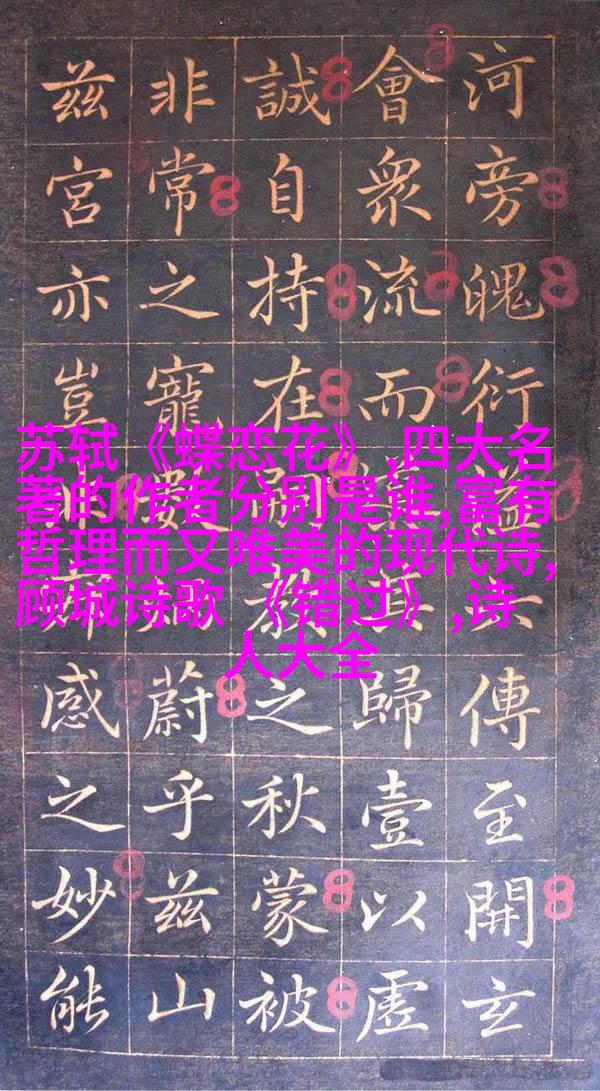 苏轼《蝶恋花》,四大名
著的作者分别是谁,富有
哲理而又唯美的现代诗,
顾城诗歌 《错过》,诗
人大全
河旁魄衍溢傳至開玄
會衆流而歸壹以虛
誠自持在之秋蒙被
非常之寵蔚乎兹山
兹宮亦豈感之妙能